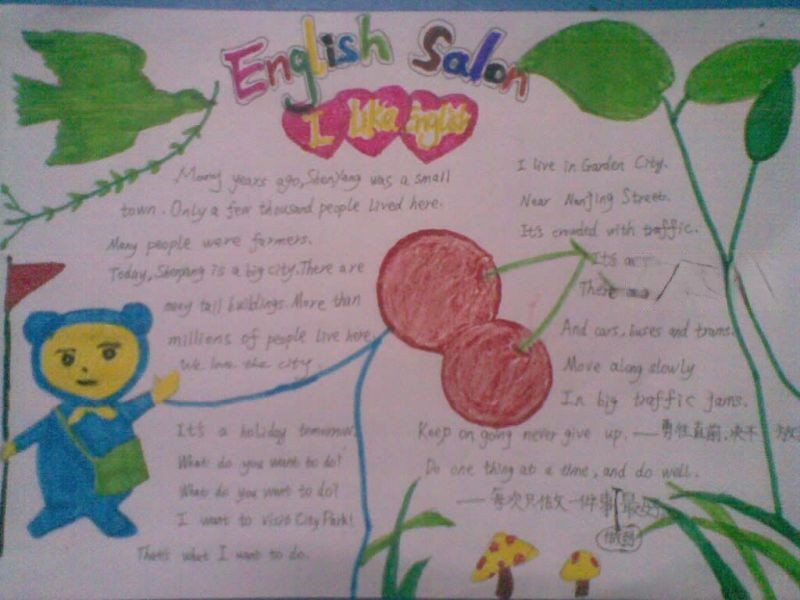 English Salon
I Like English
Many years ago, Shenyang was a small
town. Only a few thousand people lived here.
Many people were farmers.
Today, Shenyang is a big city. There are
many tall buildings. More than
millions of people live here.
We love the city.
It's a holiday tomorrow.
What do you want to do?
What do you want to do?
I want to visit City Park!
That's what I want to do.
I live in Garden City.
Near Nanjing Street.
It's crowded with traffic.
It's a
There
And cars, buses and trams.
Move along slowly
In big traffic jams.
Keep on going never give up. ——勇往直前,决不放
Do one thing at a time, and do well.
——每次只做一件事最好
做到